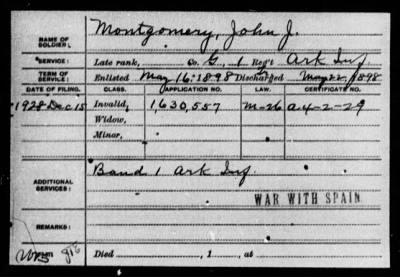 NAME OF SOLDIER: Montgomery, John J.
SERVICE: Late rank, Co. G, 1 Reg't Ark Inf.
TERM OF SERVICE: Enlisted May 16, 1898 Discharged May 22, 1898
DATE OF FILING. CLASS. APPLICATION NO. LAW. CERTIFICATE NO.
1928 Dec 15 Invalid, 1,630,557 M-26 a 4-2-29
Widow,
Minor,
ADDITIONAL SERVICES: Band 1 Ark Inf.
WAR WITH SPAIN
REMARKS:
Died , 1 , at